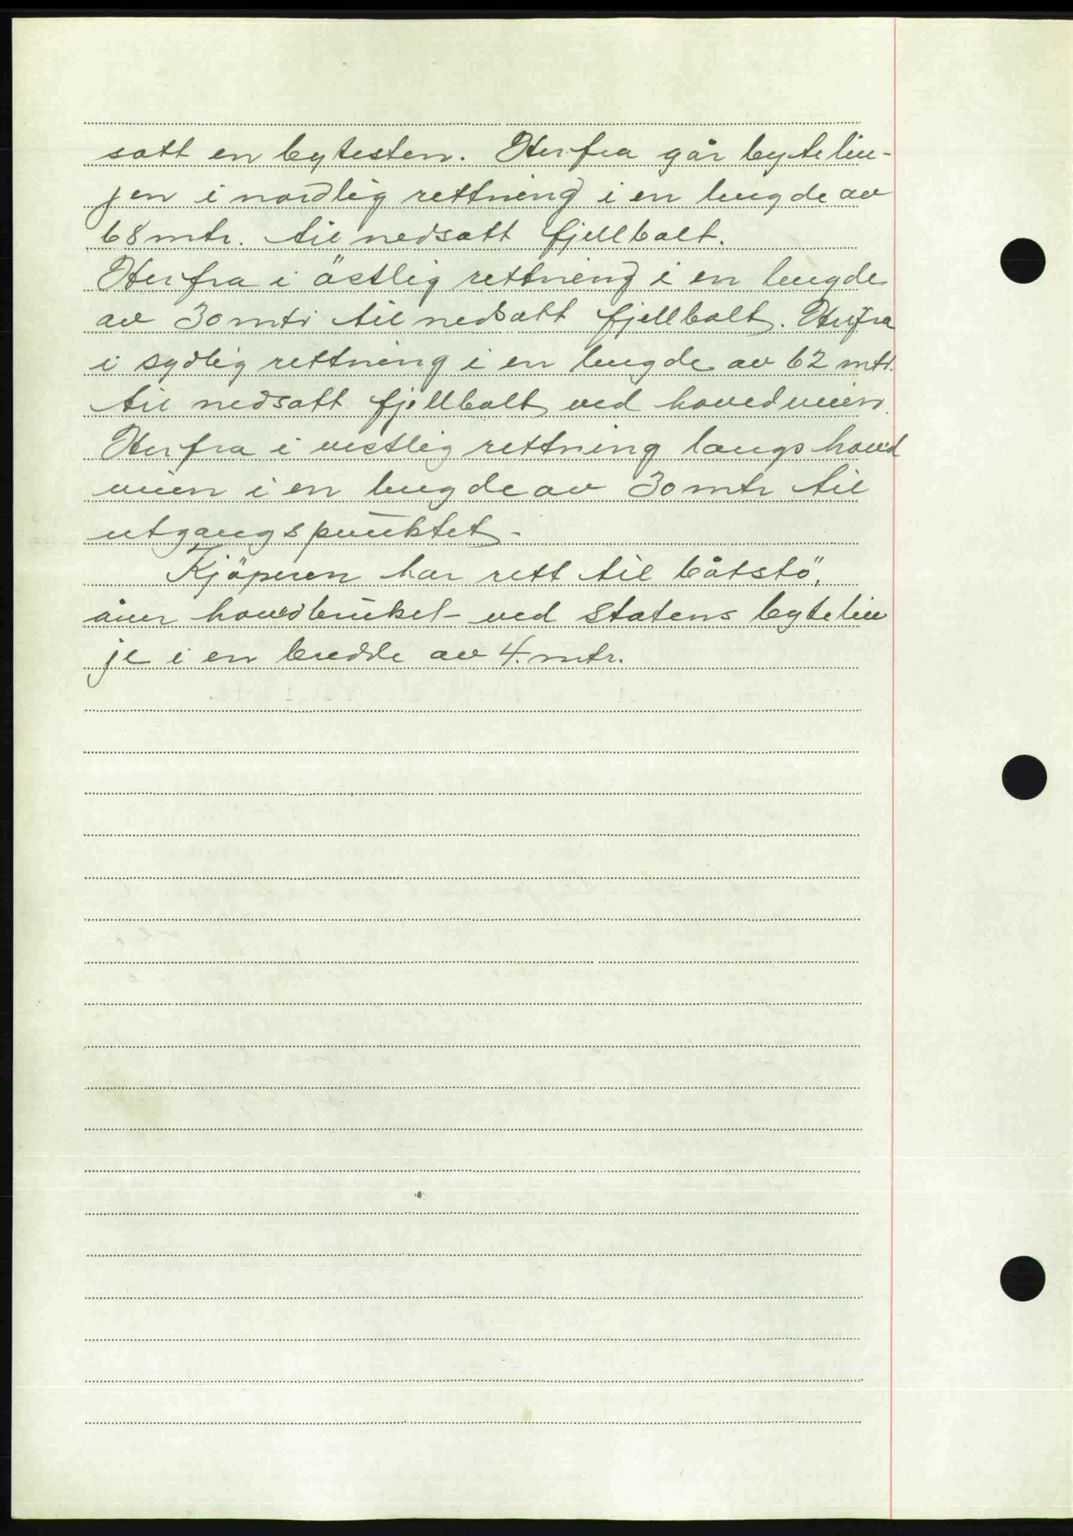 satt en bytesten. Herfra går bytelin-
jen i nordlig rettning i en lengde av
68 mtr. til nedsatt fjellbolt.
Herfra i östlig rettning i en lengde
av 30 mtr til nedsatt fjellbolt. Herfra
i sydlig rettning i en lengde av 62 mtr.
til nedsatt fjellbolt ved hovedveien.
Herfra i vestlig rettning langs hoved
veien i en lengde av 30 mtr til
utgangspunktet.
Kjöperen har rett til båtstö,
over hovedbruket ved statens bytelin
je i en bredde av 4. mtr.